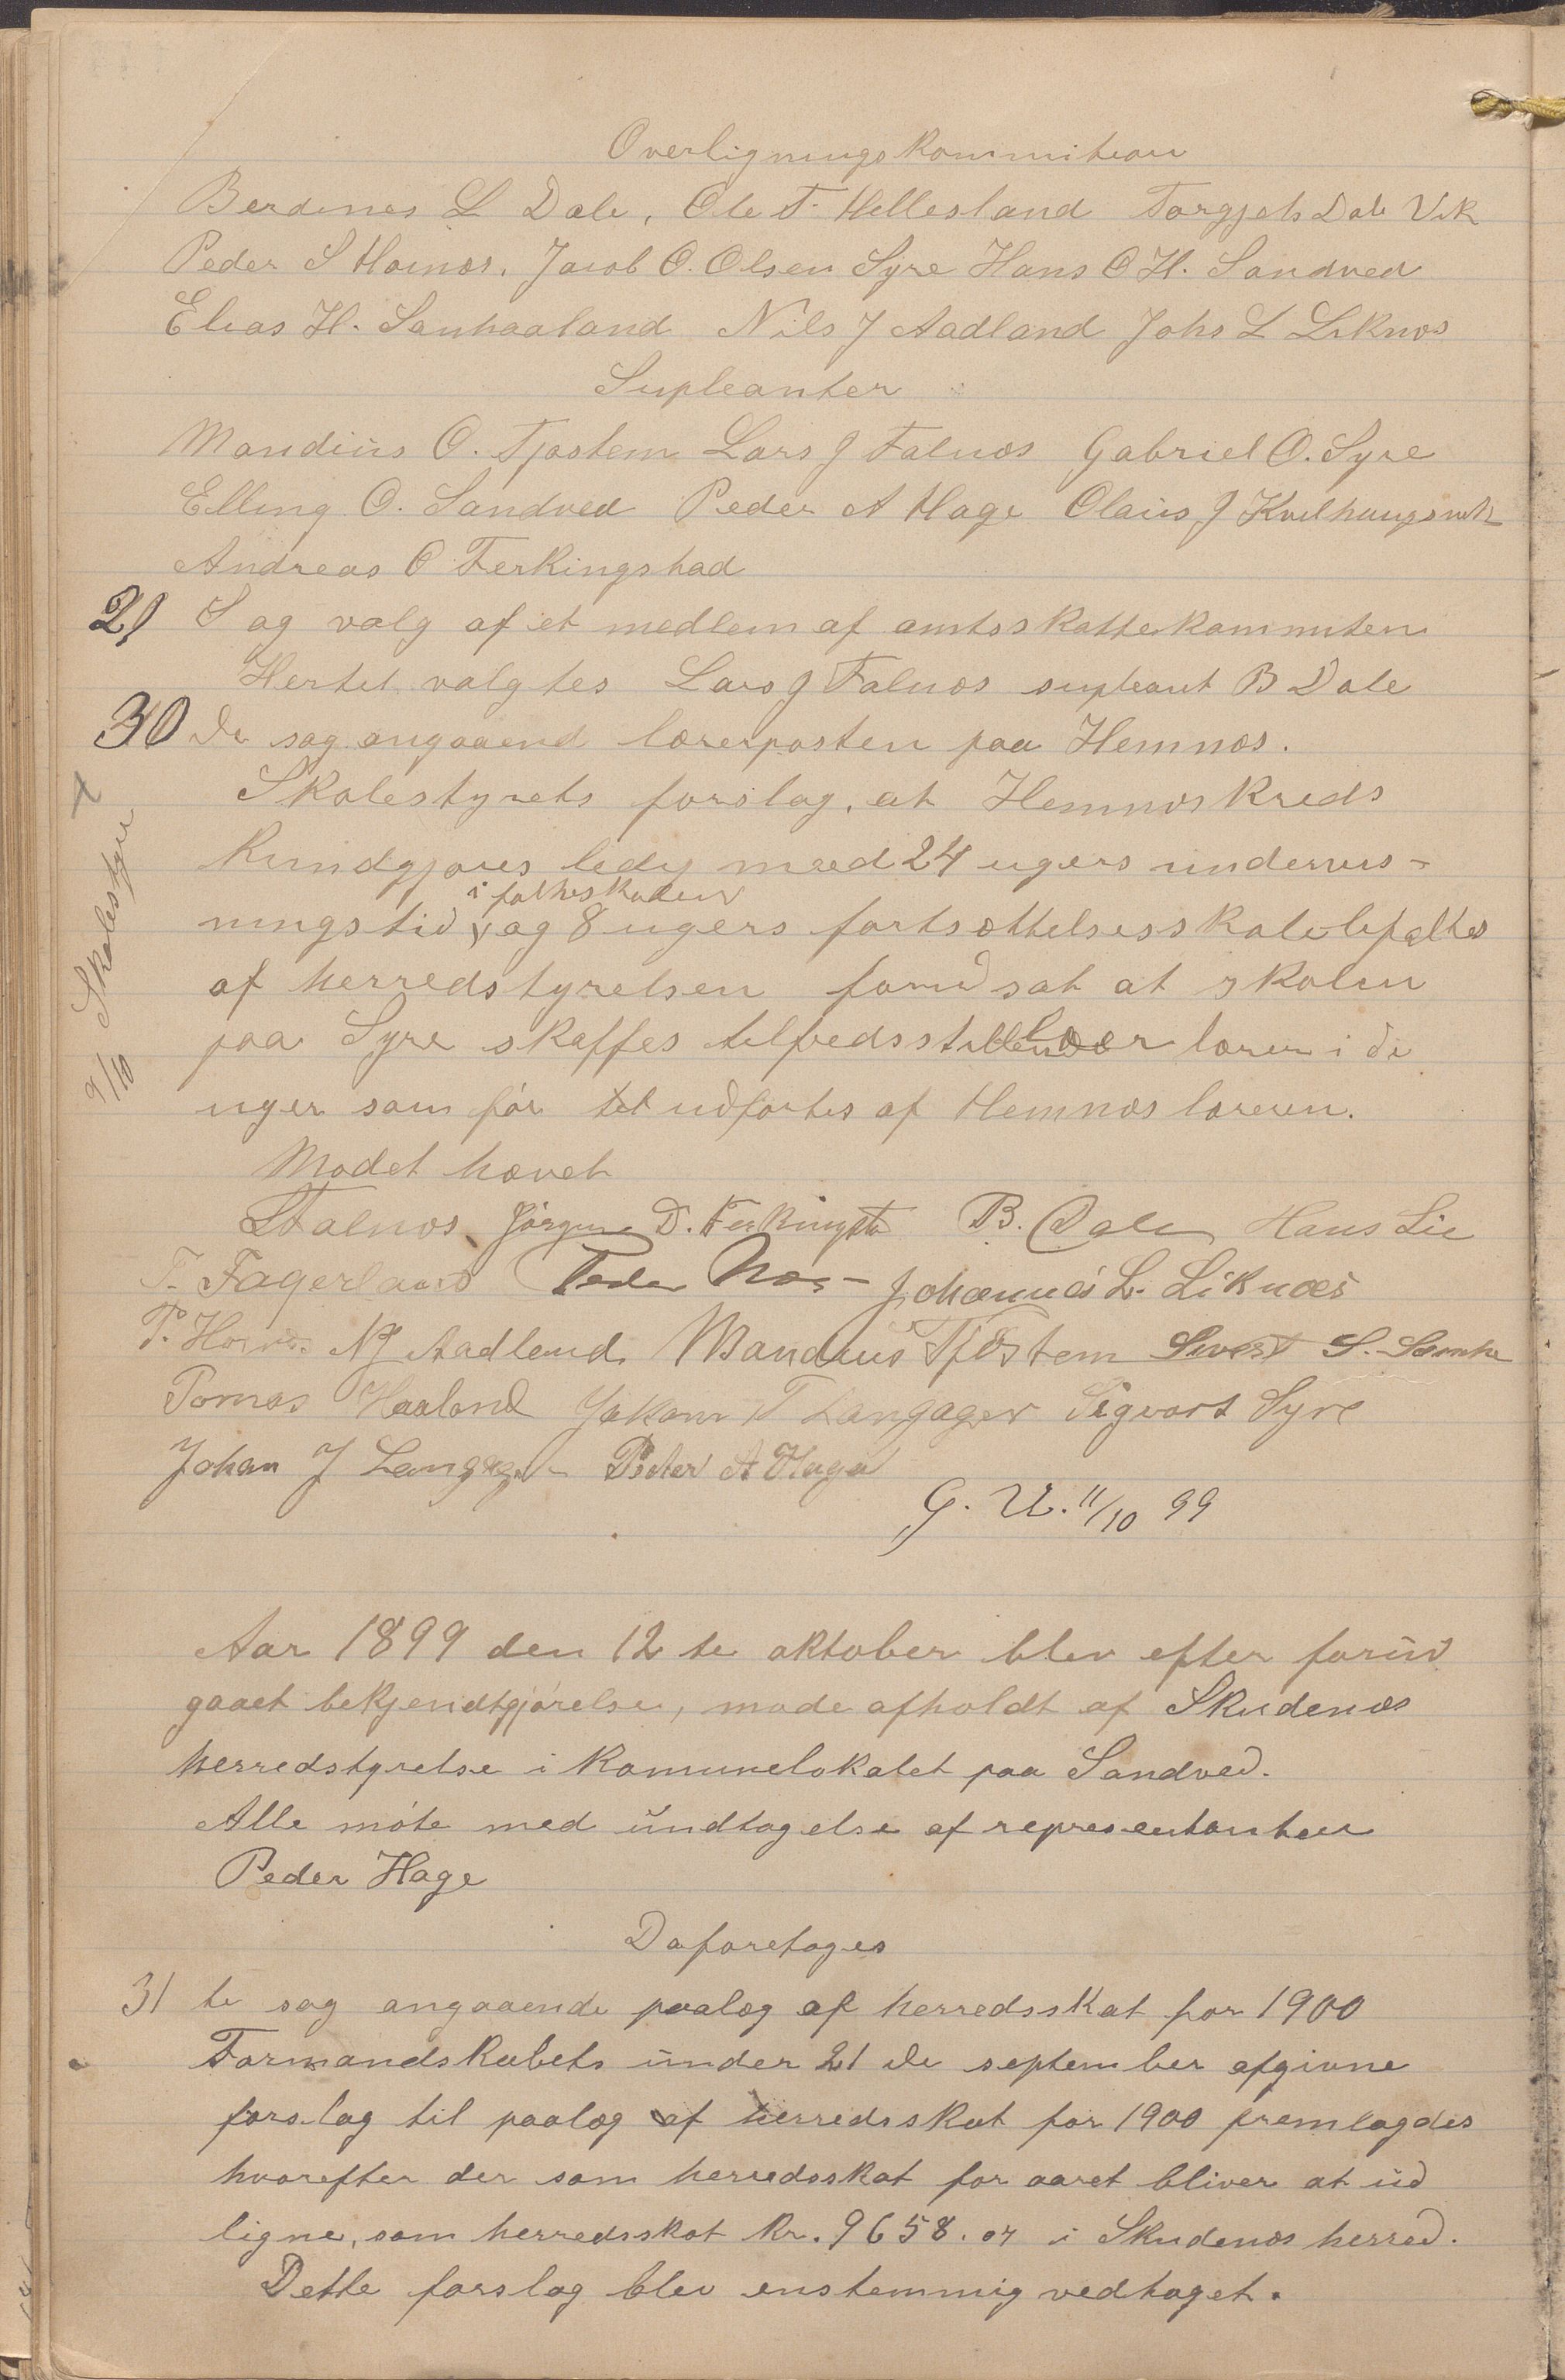 Overligningskommiteen
Berdines L Dale, Ole T. Hellesland Torgjels Dale Vik
Peder S Hornæs, Jacob O. Olsen Syre Hans O H. Sandved
Elias H. Sanhaaland Nils J Aadland Johs L Liknæs
Supleanter
Mandius O. Tjøstem Lars J Falnæs Gabriel O. Syre
Elling O. Sandved Peder A Hage Olaus J Kvilhaugsvik
Andreas O Ferkingstad
29 Sag valg af et medlem af amtsskattekommiten
Hertil valgtes Lars J Falnæs supleant B Dale
30 De sag angaaend lærerposten paa Hemnæs.
Skolestyrets forslag, at Hemnæs kreds
kundgjøres ledig med 24 ugers undervis-
i folkeskolen
ningstid og 8 ugers fortsættelsesskole
af herredstyrelsen forudsat at skolen
paa Syre skaffes tilfredsstillende lærer i de
uger som før udførtes af Hemnæs læreren.
Mødet hævet
x
Skolestyre
9/10
L Falnæs Jørgen D. Ferkingsta B. Dale Hans Lie
T. Fagerland Peder Næs Johannes L. Liknæs
P. Hornæs N J Aadland Mandius Tjøstem Sivert S. Sanha
Tomas Haaland Jakom T Langager Sigvart Syre
Johan J Langager Peder A Hage
G. U. 11/10 99
Aar 1899 den 12 te oktober blev efter forud
gaaet bekjendtgjørelse, møde afholdt af Skudenæs
herredstyrelse i Komunelokalet paa Sandved.
Alle møte med undtagelse af representanten
Peder Hage
Da foretoges
31 te sag angaaende paalæg af herredsskat for 1900
Formandskabets under 21 de september afgivne
forslag til paalæg af herredsskat for 1900 fremlagdes
hvorefter der som herredsskat for aaret bliver at ud
ligne, som herredsskat kr. 9658.04 i Skudenæs herred.
Dette forslag blev enstemmig vedtaget.